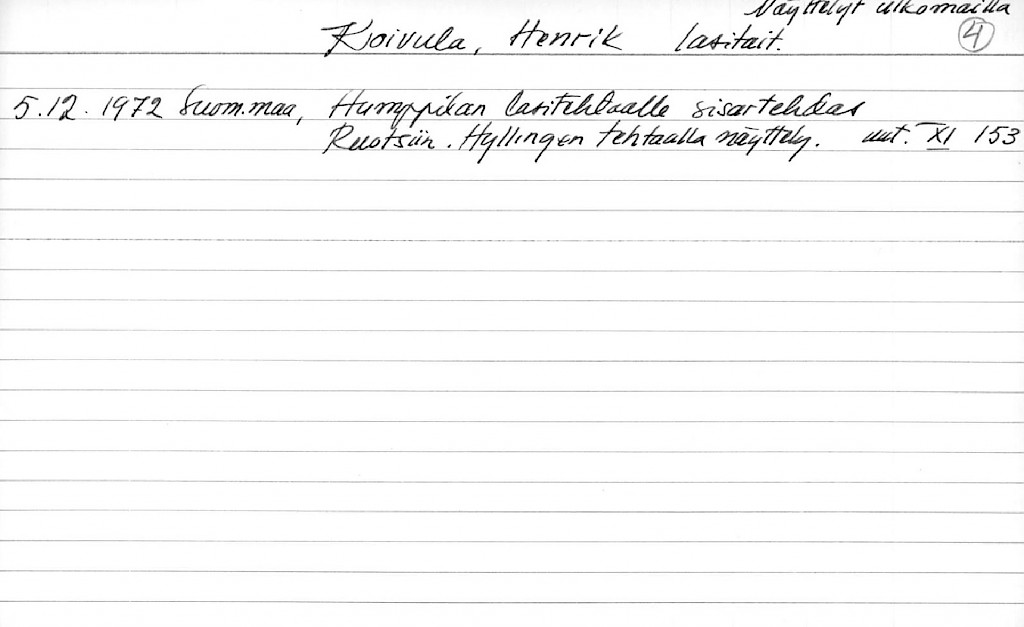 Näyttelyt ulkomailla
Koivula, Henrik lasitait. 4
5.12.1972 Suom.maa, Humppilan lasitehtaalle sisartehdas
Ruotsiin. Hyllingen tehtaalla näyttely. uut. XI 153